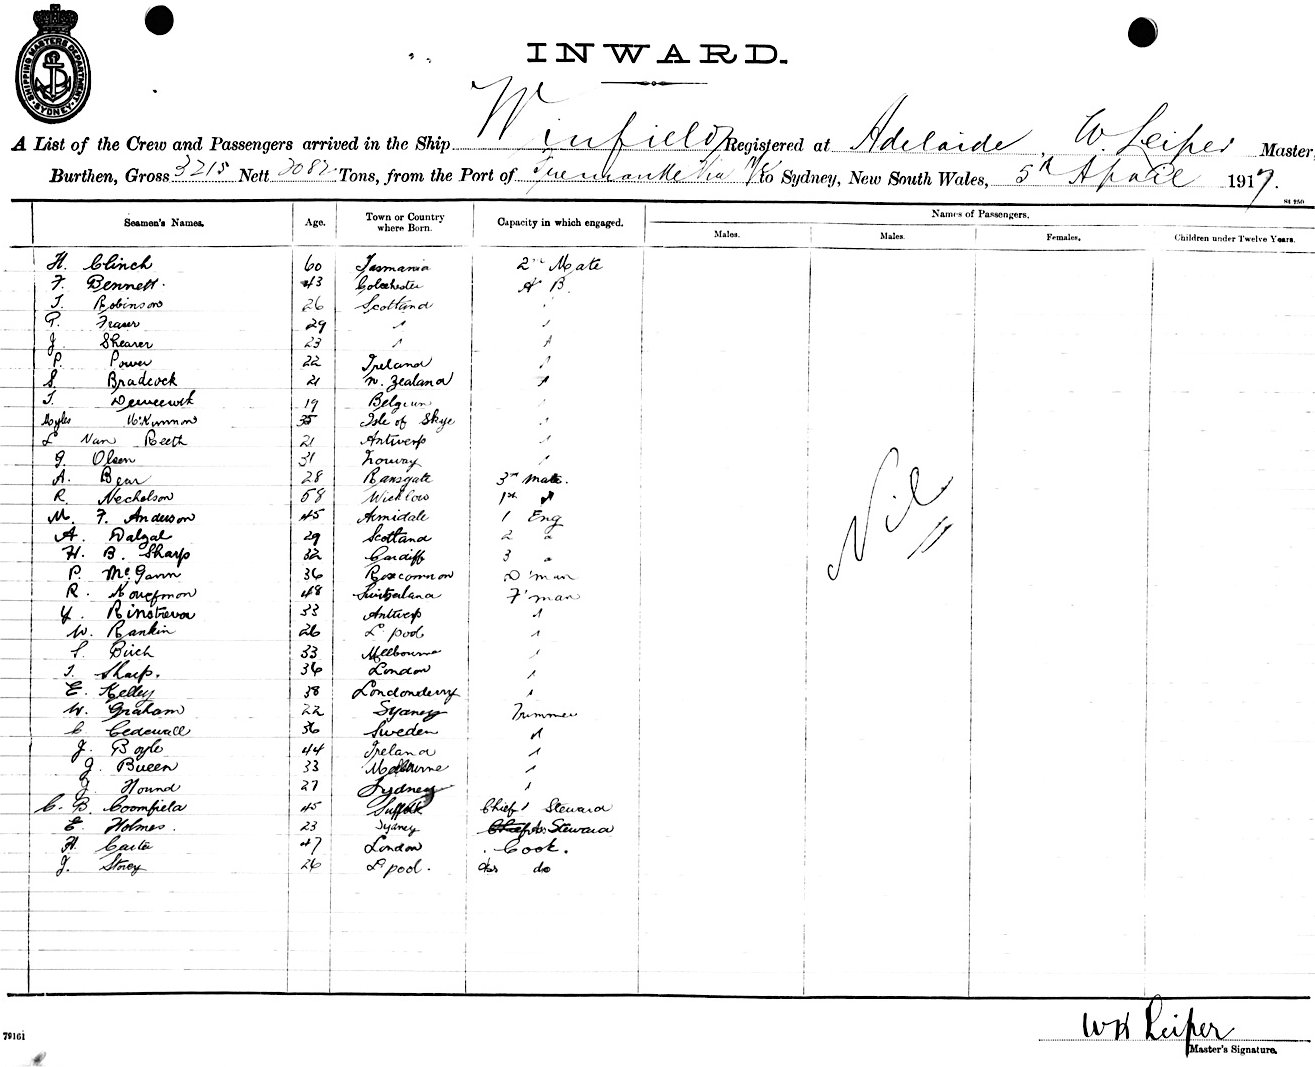 SHIPPING MASTERS DEPARTMENT SYDNEY
INWARD.
A List of the Crew and Passengers arrived in the Ship Winfield Registered at Adelaide, W. Leiper Master,
Burthen, Gross 3215 Nett 2082 Tons, from the Port of Fremantle Via to Sydney, New South Wales, 5th April 1917.
S1 250
Seamen's Names. Age. Town or Country where Born. Capacity in which engaged. Names of Passengers.
Males. Males. Females. Children under Twelve Years.
H. Clinch 60 Tasmania 2nd Mate
F. Bennett. 43 Colchester A B.
T. Robinson 26 Scotland "
P. Fraser 29 " "
J. Shearer 23 " "
P. Power 22 Ireland "
S. Bradcock 21 N. Zealand "
T. 19 Belgium "
Myles McKinnon 35 Isle of Skye "
L Van Reeth 21 Antwerp "
G. Olsen 31 Norway "
A. Bear 28 Ramsgate 3rd Mate.
R. Nicholson 58 Wicklow 1st "
M. F. Anderson 45 Armidale 1 Eng
A. Dalzal 29 Scotland 2 "
H. B. Sharp 32 Cardiff 3 "
P. McGann 36 Roscommon D'man
R. 48 Switzerland F'man
33 Antwerp "
W. Rankin 26 L'pool "
Birch 33 Melbourne "
T. Sharp. 36 London "
E. Kelley 38 Londonderry "
W. Graham 22 Sydney Trimmer
C Cedewall 36 Sweden "
J. Boyle 44 Ireland "
J. Bueen 33 Melbourne "
J Hound 27 Sydney "
C. B. Coomfield 45 Suffolk Chief Steward
E. Holmes. 23 Sydney Chief As Steward
H. Carter 47 London . Cook.
J. Storey 26 L'pool. do
Nil
79161
WH Leiper
Master's Signature.